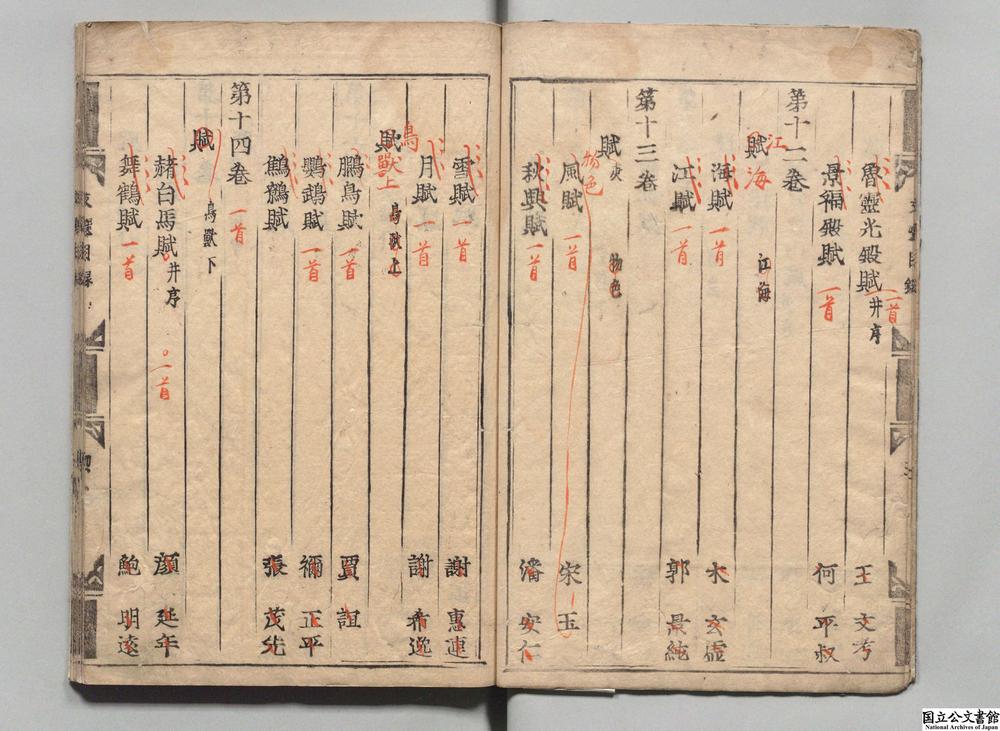 魯靈光殿賦 并序 一首 王文考
景福殿賦 一首 何平叔
第十二卷
賦 江海 江海
海賦 一首 木玄虛
江賦 一首 郭景純
第十三卷
賦庚 物色 物色
風賦 一首 宋玉
秋興賦 一首 潘安仁
雪賦 一首 謝惠連
月賦 一首 謝希逸
賦 鳥獸上 鳥獸上
鵬鳥賦 一首 賈誼
鸚鵡賦 一首 禰正平
鷦鷯賦 張茂先
第十四卷 一首
賦 鳥獸下
赭白馬賦 并序 一首 顏延年
舞鶴賦 一首 鮑明遠
国立公文書館
National Archives of Japan